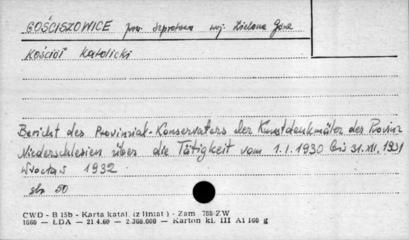 GOŚCISZOWICE pow. Szprotawa woj. Zielona Góra
Kościół Katolicki
Bericht des Provinzial-Konservators der Kunstdenkmäler der Provinz
Niederschlesien über die Tätigkeit vom 1.I.1930 bis 31.XII.1931
Wrocław 1932
str. 50
CWD - B 15b - Karta katal. (z liniat) - Zam 788 ZW
1660 - ŁDA - 21.4.60 - 2.300.000 - Karton kl. III A1 160 g